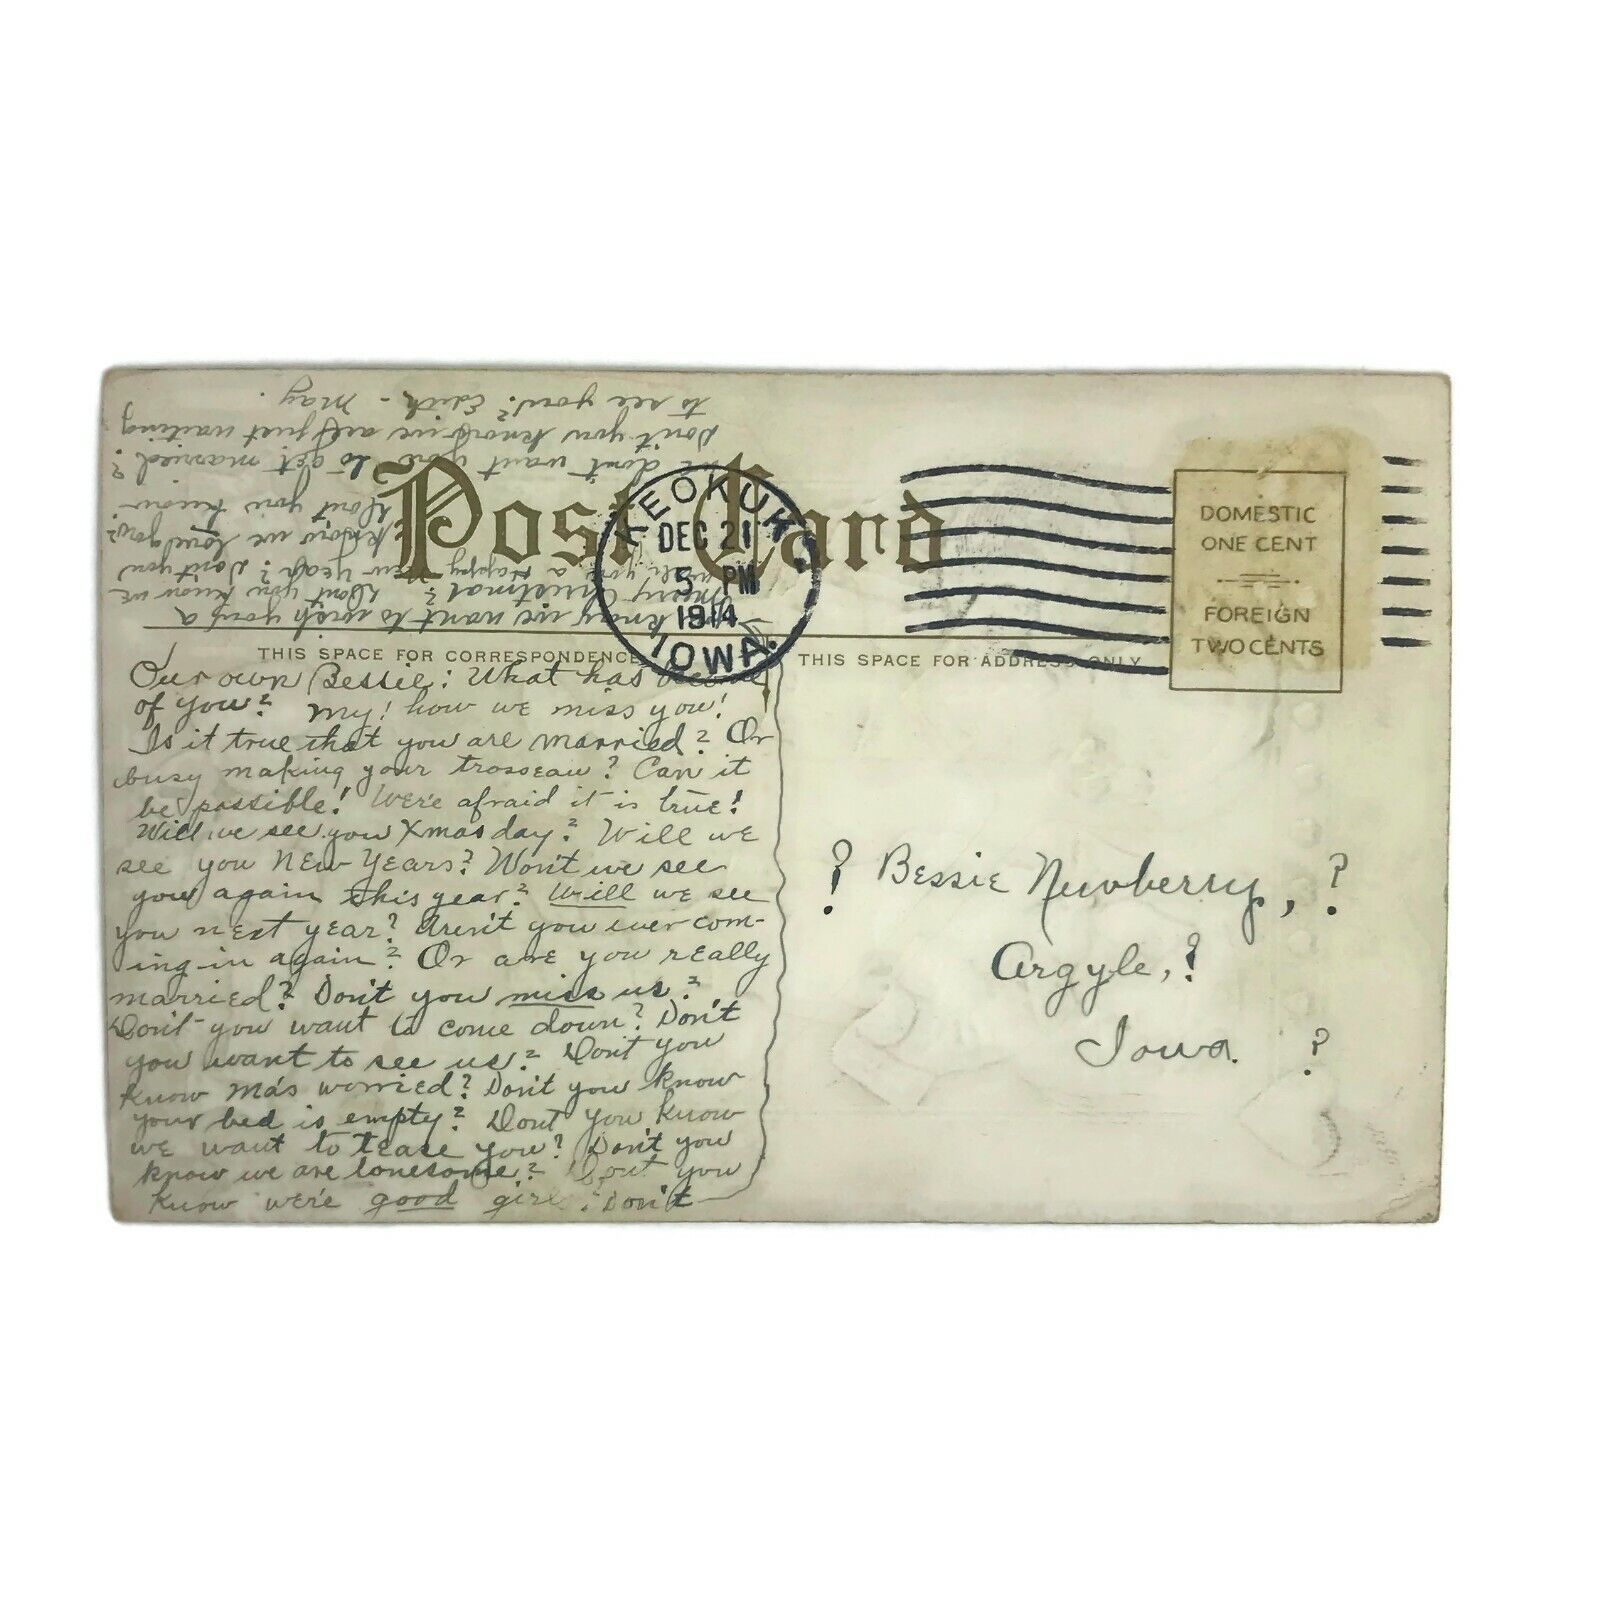 Post Card
KEOKUK
DEC 21
5 PM
1914
IOWA.
DOMESTIC
ONE CENT
FOREIGN
TWO CENTS
THIS SPACE FOR CORRESPONDENCE
THIS SPACE FOR ADDRESS ONLY
Our own Bessie: What has become
of you? My! how we miss you!
Is it true that you are married? Or
busy making your trosseau? Can it
be possible! We're afraid it is true!
Will we see you Xmas day? Will we
see you New Years? Won't we see
you again this year? Will we see
you next year? Aren't you ever com-
ing in again? Or are you really
married? Don't you miss us?
Don't you want to come down? Don't
you want to see us? Don't you
know ma's worried? Don't you know
your bed is empty? Dont you know
we want to tease you? Don't you
know we are lonesome? Dont you
know we're good girls? Don't
you know we want to wish you a
Merry Christmas? Don't you know we
wish you a Happy New Year? Don't you
know we love you?
Dont you know
we don't want you to get married?
Don't you know we are just waiting
to see you? Edith - May.
? Bessie Newberry, ?
Argyle, ?
Iowa. ?